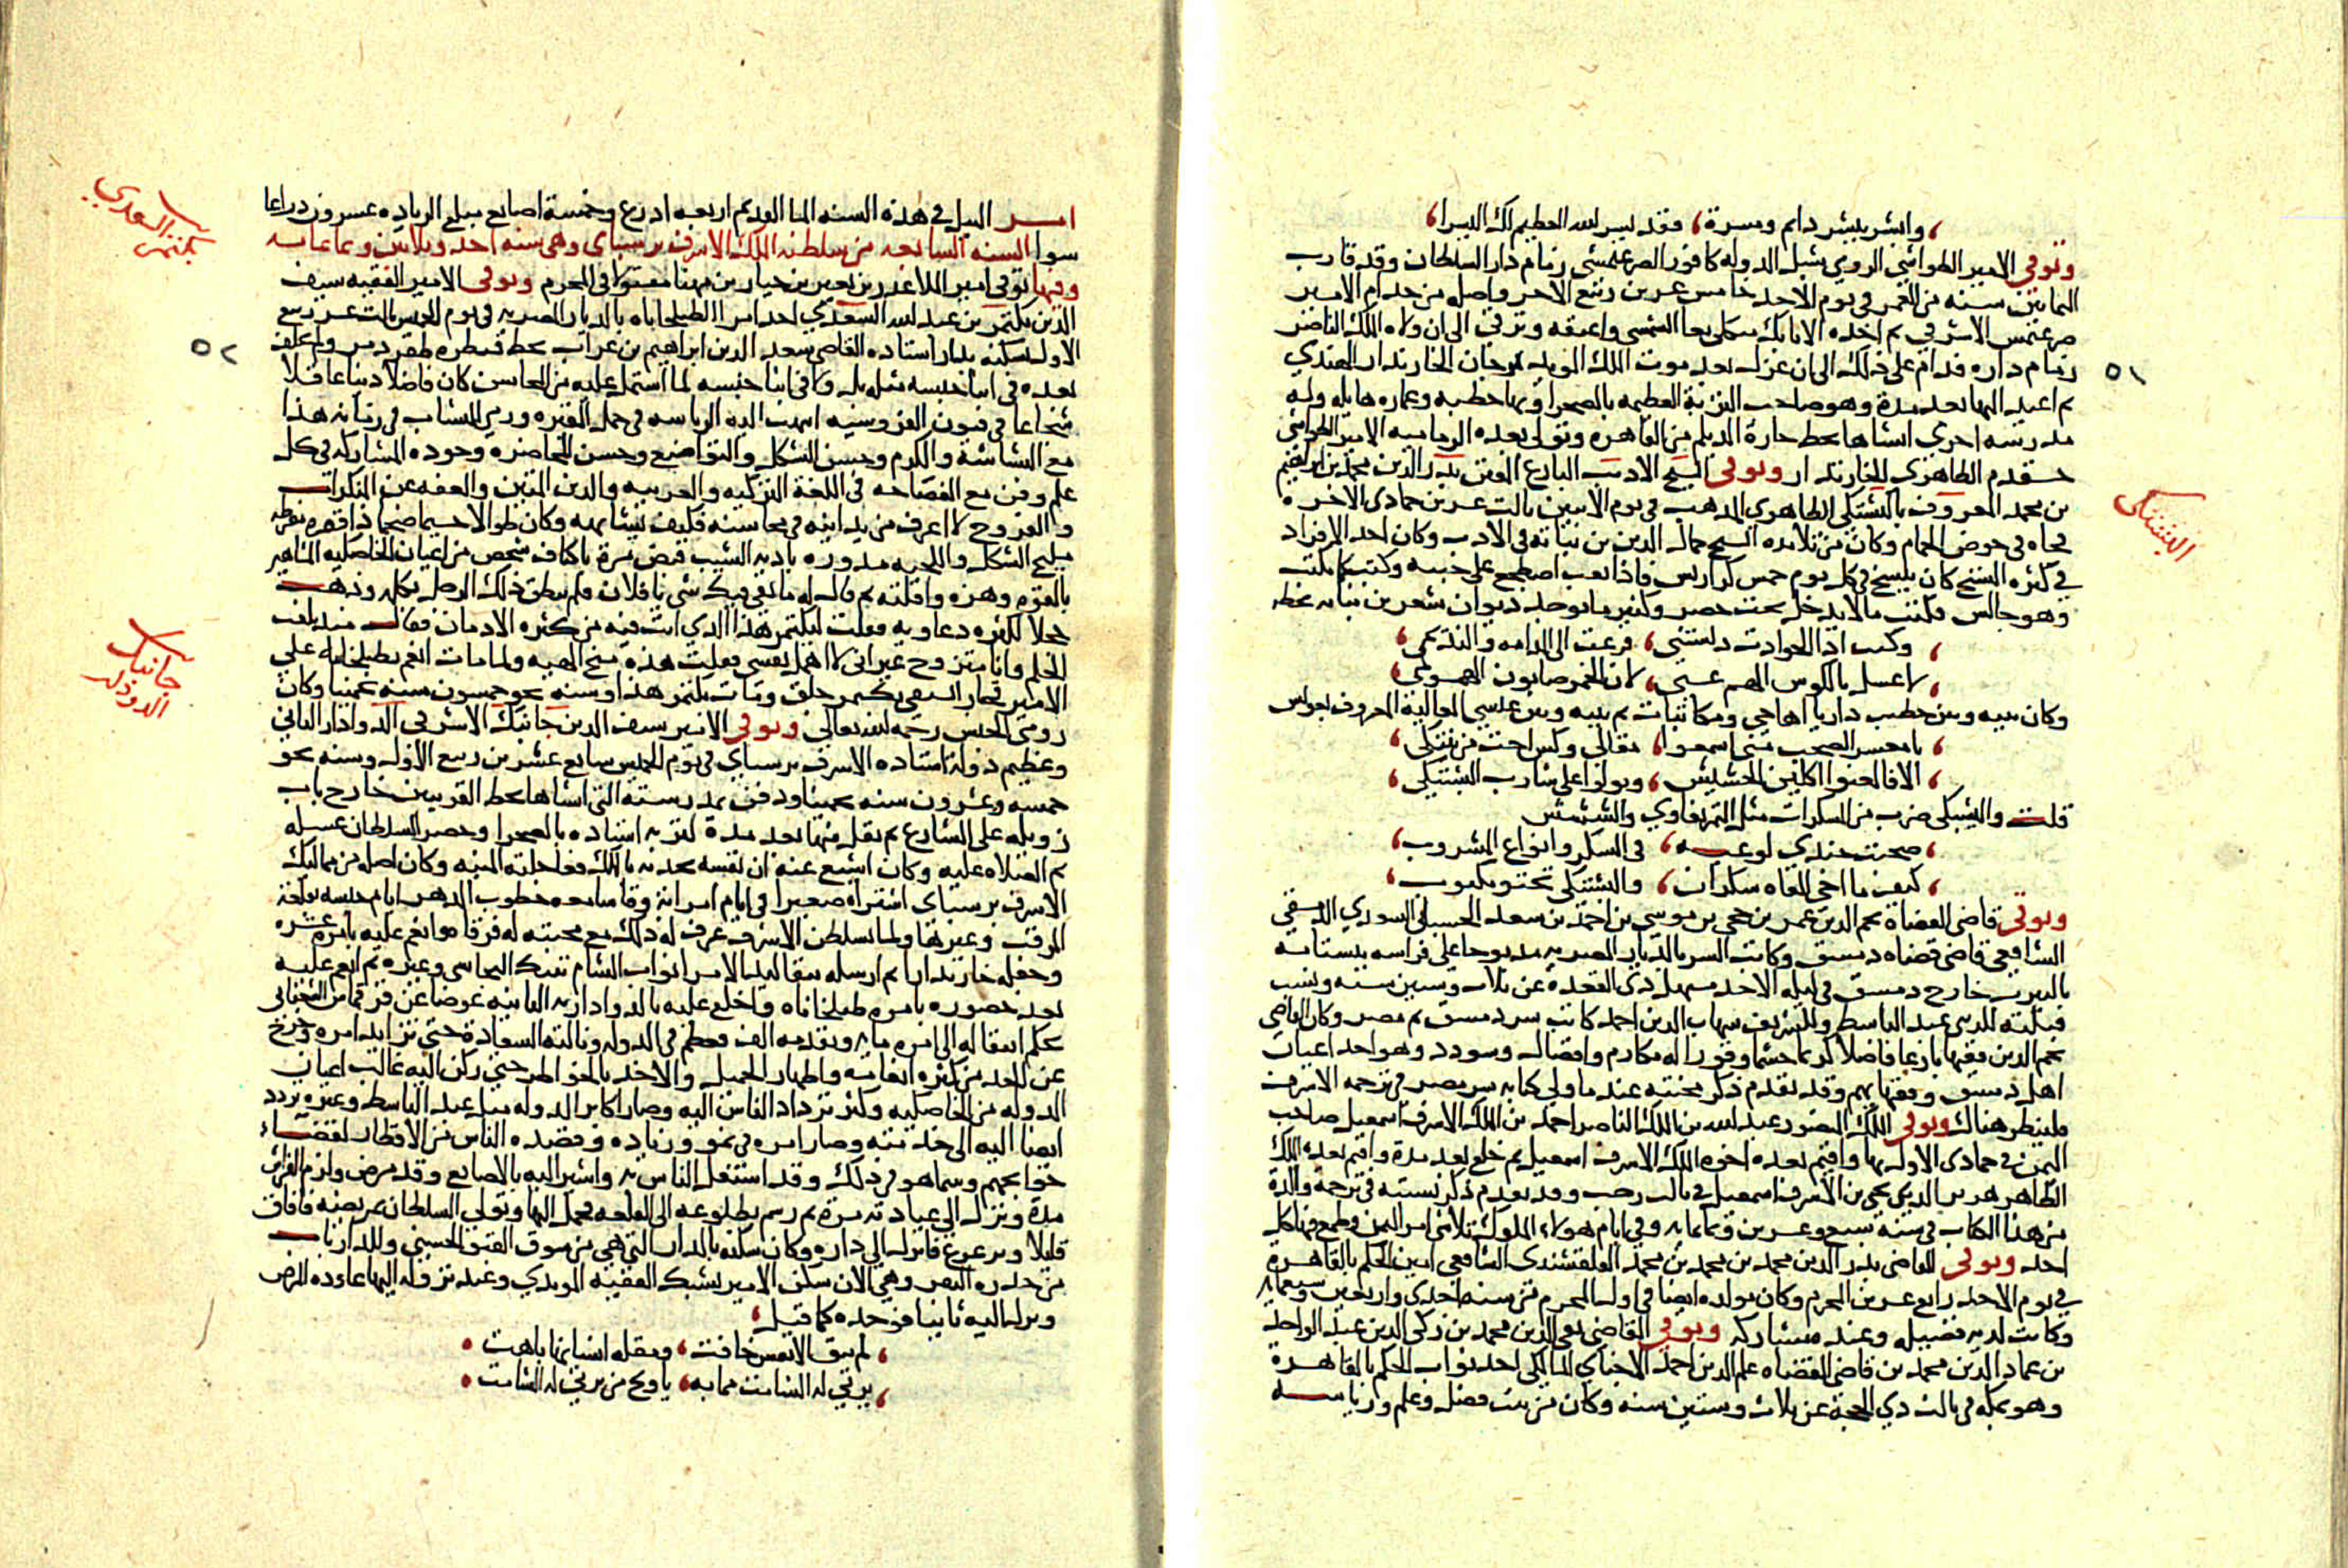 وابشر ببشر دايم ومسرة فقد يسر الله العظيم لك اليسرا
وتوفي الامير الطواشي الرومي شبل الدوله كافور الصرغتمشي زمام دار السلطان وقد قارب
الثمانين سنه من العمر في يوم الاحد خامس عشرين ربيع الاخر واصله من خدام الامير
صرغتمش الاشرفي ثم اخذه الاتابك منكلي بغا الشمسي واعتقه وترقى الى ان ولاه الملك الناصر
زمام داره فدام على ذلك الى ان عزل بعد موت الملك المويد بمرجان الخازندار الهندي
ثم اعيد اليها بعد مدة وهو صاحب التربة العظيمه بالصحرا وبها خطبه وعماره هايله وله
مدرسه اخرى انشاها بخط حارة الديلم من القاهره وتولى بعده الزماميه الامير الطواشي
خشقدم الظاهري الخازندار وتوفي الشيخ الاديب البارع المفنن بدر الدين محمد بن ابراهيم
بن محمد المعروف بالبشتكي الظاهري المذهب في يوم الاثنين ثالث عشرين جمادى الاخره
فجاه في حوض الحمام وكان من تلامذه الشيخ جمال الدين بن نباته في الادب وكان احد الافراد
في كثره النسخ كان ينسخ في كل يوم خمس كراريس فاذا تعب اضطجع على جنبه وكتب كما يكتب
وهو جالس فكتب ما لا يدخل تحت حصر وكثير ما يوجد ديوان شعر بن نباته بخطه
وكنت اذا الحوادث دنستني فرعت الى المدامه والنديم
لاغسل بالكوس الهم عني لان الخمر صابون الهموم
وكان بينه وبين خطيب داريا اهاجي ومكاتبات ثم بينه وبين عيسي العالية المعروف
يا معشر الصحب مني اسمعوا مقالي وكل اخت من بشتكي
الا فالعنوا اكلين الحشيش وبولوا على شارب البشتكي
قلت والبشتكي ضرب من المسكرات مثل التمربغاوي والششش
صحبت جندي لو عيبه في السكر وانواع المشروب
كيف ما اجي القاه سكران والبشتكي تحتو مكبوب
وتوفي قاضي القضاة نجم الدين عمر بن حجي بن موسي بن احمد بن سعد الحسباني السعدي الدمشقي
الشافعي قاضي قضاه دمشق وكاتب السر بالديار المصريه مذبوحا على فراشه ببستانه
بالنيرب خارج دمشق في ليله الاحد مستهل ذي القعدة عن ثلاث وستين سنه ونسب
قتلته للزيني عبد الباسط وللشريف شهاب الدين احمد كاتب سر دمشق ثم مصر وكان القاضي
نجم الدين فقيها بارعا فاضلا كريما حشما وقورا له مكارم وافضال وسودد وهو احد اعيان
اهل دمشق وفقهايهم وقد تقدم ذكر محنته عند ما ولي كتابه سر مصر في ترجمه الاشرف
فلينظر هناك وتوفي الملك المنصور عبد الله بن الملك الناصر احمد بن الملك الاشرف اسمعيل صاحب
اليمن في جمادى الاولى بها واقيم بعده اخوه الملك الاشرف اسمعيل ثم خلع بعد مدة واقيم بعده الملك
الظاهر هزبر الدين يحيى بن الاشرف اسمعيل في ثالث رجب وقد تقدم ذكر نسبته في ترجمة والده
من هذا الكتاب في سنه سبع وعشرين وثمانمايه وفي ايام هولاء الملوك تلاشى امر اليمن وطمع فيها كل
احد وتوفي القاضي بدر الدين محمد بن محمد بن محمد القلقشندي الشافعي امين الحكم بالقاهرة
في يوم الاحد رابع عشرين المحرم وكان مولده ايضا في اول المحرم من سنه احدى واربعين وسبعمايه
وكانت لديه فضيله وعنده مشاركه وتوفي القاضي تقي الدين محمد بن زكي الدين عبد الواحد
بن عماد الدين محمد بن قاضي القضاه علم الدين احمد الاخناي المالكي احد نواب الحكم بالقاهرة
وهو بمكه في ثالث ذي الحجة عن ثلاث وستين سنه وكان من بيت فضل وعلم ورياسه
البشتكي
٥١
امر النيل في هذه السنه الما القديم اربعه اذرع وخمسة اصابع مبلغ الزياده عشرون ذراعا
سوا السنه السابعه من سلطنه الملك الاشرف برسباي وهي سنه احد وثلاثين وثمانمايه
وفيها توفي امير الملا عذرا بن نعير بن حيار بن مهنا مقتولا في المحرم وتوفي الامير الفقيه سيف
الدين بكتمر بن عبد الله السعدي احد امرا الطبلخاناه بالديار المصريه في يوم الخميس ثالث عشر ربيع
الاول بسكنه بدار استاده القاضي سعد الدين ابراهيم بن غراب بخط قنطره طقزدمر ولم يخلف
بعده في ابنا جنسه مثله بل وفي ابنا جنسه لما اشتمل عليه من المحاسن كان فاضلا دينا عاقلا
شجاعا في فنون الفروسيه انتهت اليه الرياسه في حمل المقيره ورمي النشاب في زمانه هذا
مع البشاشة والكرم وحسن الشكل والتواضع وحسن المحاضره وجوده المشاركه في كل
علم وفن مع الفصاحه في اللغة التركيه والعربيه والدين المتين والعفه عن المنكرات
والفروج لا اعرف من يدانيه في محاسنه فكيف يشابهه وكان طوالا جسيما ضخما ذا قوه مفرطه
مليح الشكل واللحيه مدوره باديه الشيب قبض مرة باكتاف شخص من اعيان الخاصكيه المشاهير
بالقوه وهزه وافلته ثم قال له ما بقي فيك شي يا فلان فلم ينطق ذلك الرجل بكلمه وذهب
خجلا لكثره دعاويه فقلت لبكتمر هذا الذي انت فيه من كثره الادمان فقال منذ بلغت
الحلم وانا متزوج غير اني لا اهمل نفسي فعليت هذه منح الهيه ولما مات انعم بطبلخاناه على
الامير قجقار السيفي بكتمر جلق ومات بكتمر هذا وسنه نحو خمسون سنه تخمينا وكان
رومي الجنس رحمه الله تعالى وتوفي الامير سيف الدين جانبك الاشرفي الدوادار الثاني
وعظيم دولة استاده الاشرف برسباي في يوم الخميس سابع عشرين ربيع الاول وسنه نحو
خمسه وعشرون سنه تخمينا ودفن بمدرسته التي انشاها بخط القربيين خارج باب
زويله على الشارع ثم نقل منها بعد مدة لتربه استاده بالصحرا وحضر السلطان غسله
ثم الصلاه عليه وكان اشيع عنه ان نفسه تحدثه بالملك فعاجلته المنيه وكان اصله من مماليك
الاشرف برسباي اشتراه صغيرا في ايام امرته وقاسا معه خطوب الدهر ايام حبسه بقلعه
المرقب وغيرها ولما تسلطن الاشرف عرف له ذلك مع محبته له فرقاه وانعم عليه بامره عشره
وجعله خازندارا ثم ارسله بتقاليد الامرا نواب الشام تنبك البجاسي وغيره ثم انعم عليه
بعد حضوره بامره طبلخاناه واخلع عليه بالدواداريه الثانيه عوضا عن قرقماس الشعباني
بحكم انتقاله الى امره مايه وتقدمه الف فعظم في الدوله ونالته السعادة حتى تزايد امره وخرج
عن الحد من كثره انعامه واظهار الجميل والاخذ بالخواطر حتى ركن اليه غالب اعيان
الدوله من الخاصكيه وكثر ترداد الناس اليه وصار اكابر الدوله مثل عبد الباسط وغيره يتردد
ايضا اليه الى خدمته وصار امره في نمو وزياده وقصده الناس من الاقطار لقضاء
حوايجهم وبينما هو في ذلك وقد اشتغل الناس به واشير اليه بالاصابع وقد مرض ولزم الفراش
مدة ونزل الى عيادته مرة ثم رسم بطلوعه الى القلعه فحمل اليها وتولى السلطان تمريضه فافاق
قليلا وترعرع فانزل الى داره وكان سكنه بالدار التي هي من سوق القبو الحسيني وللدار باب
من حدره البقر وهي الان سكن الامير يشبك الفقيه المويدي وعند نزوله اليها عاوده المرض
ونزل اليه ثانيا فوجده كما قيل
لم يبق الا نفس خافت ومقله انسانها باهت
يرثي له الشامت مما به يا ويح من يرثي له الشامت
بكتمر السعدي
٥٢
جانبك الدوادار